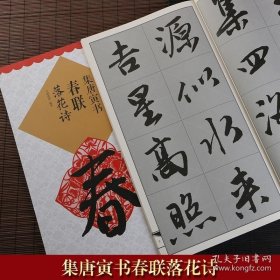 集四海
源似水来
吉星高照
集唐寅书
春联
落花诗
春
集唐寅书春联落花诗
孔夫子旧书网